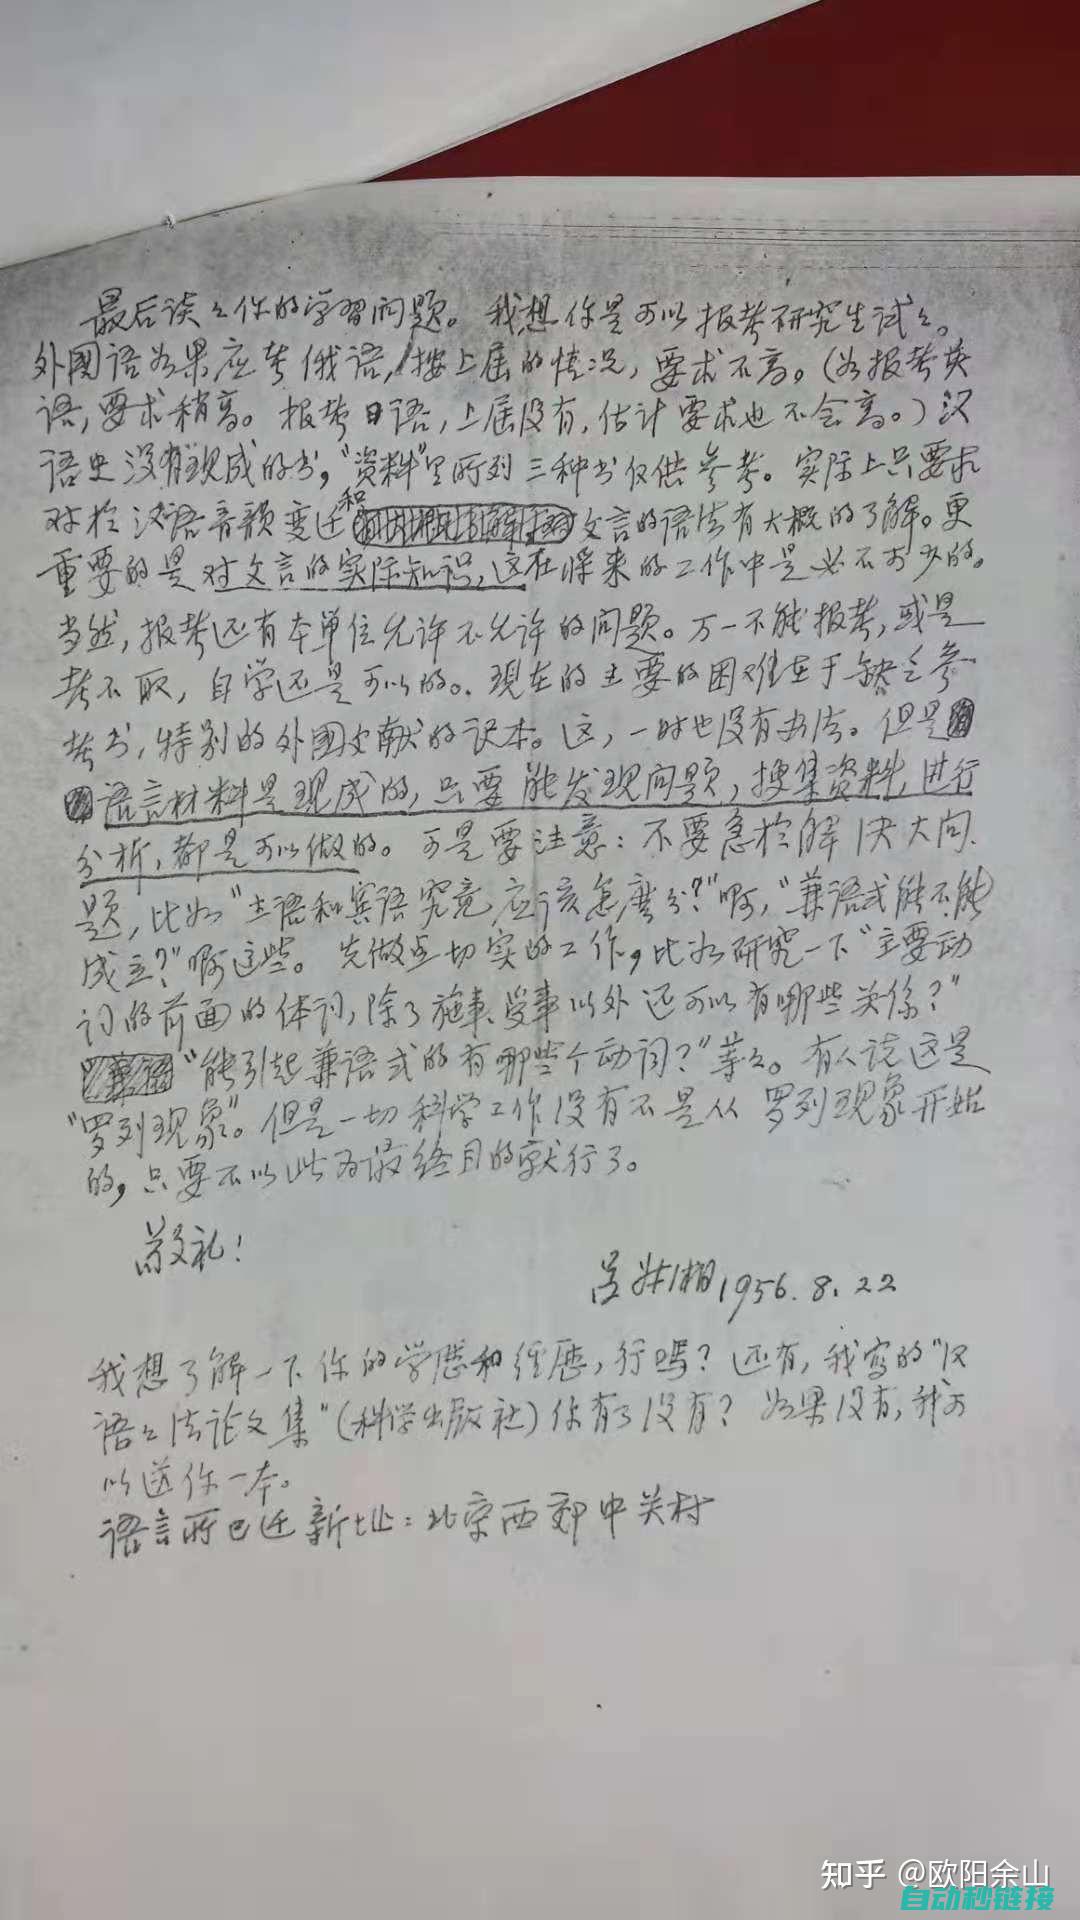 最后谈々你的学習问题。我想你是可以报考研究生试々。
外國语如果应考俄语,按上届的情况,要求不高。(如报考英
语,要求稍高。报考日语,上届没有,估计要求也不会高。)汉
语史没有现成的书,“资料”里所列三种书仅供参考。实际上只要求
对於汉语音韵变迁和文言的语法有大概的了解。更
重要的是对文言的实际知识,这在将来的工作中是必不可少的。
当然,报考还有本单位允许不允许的问题。万一不能报考,或是
考不取,自学还是可以的。现在的主要的困难在于缺乏参
考书,特别的外國文献的译本。这,一时也没有办法。但是
语言材料是现成的,只要能发现问题,搜集资料,进行
分析,都是可以做的。可是要注意:不要急於解决大问
题,比如“主语和宾语究竟应该怎麽分?”啊,“兼语式能不能
成立?”啊这些。先做点切实的工作,比如研究一下“主要动
词的前面的体词,除了施事、受事以外还可以有哪些关係?”
“能引起兼语式的有哪些个动词?”等々。有人说这是
“罗列现象”。但是一切科学工作没有不是从罗列现象开始
的,只要不以此为最终目的就行了。
敬礼!
吕叔湘 1956.8.22
我想了解一下你的学歷和经歷,行吗?还有,我写的“汉
语々法论文集”(科学出版社)你有了没有?如果没有,我可
以送你一本。
语言所已迁新址:北京西郊中关村
知乎 @欧阳余山
自动秒链接